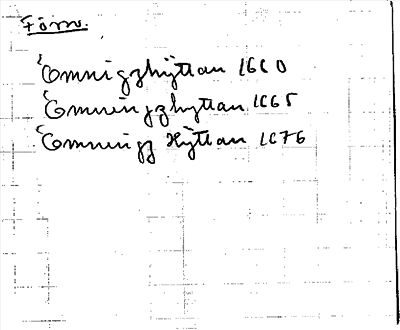 Förnr.
Emnigzhÿttan 1660
Emningzhyttan 1665
Emningz Hÿttan 1676